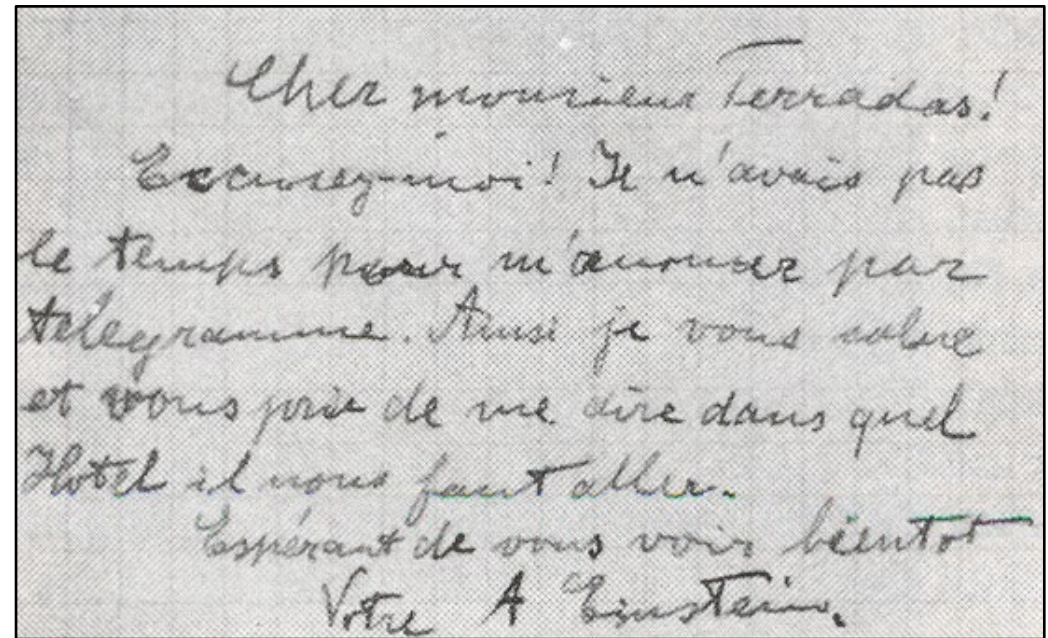 Cher monsieur Terradas!
Excusez-moi! Je n'avais pas
le temps pour m'anoncer par
telegramme. Ainsi je vous salue
et vous prie de me dire dans quel
Hotel il nous faut aller.
Espérant de vous voir bientot
Votre A Einstein.